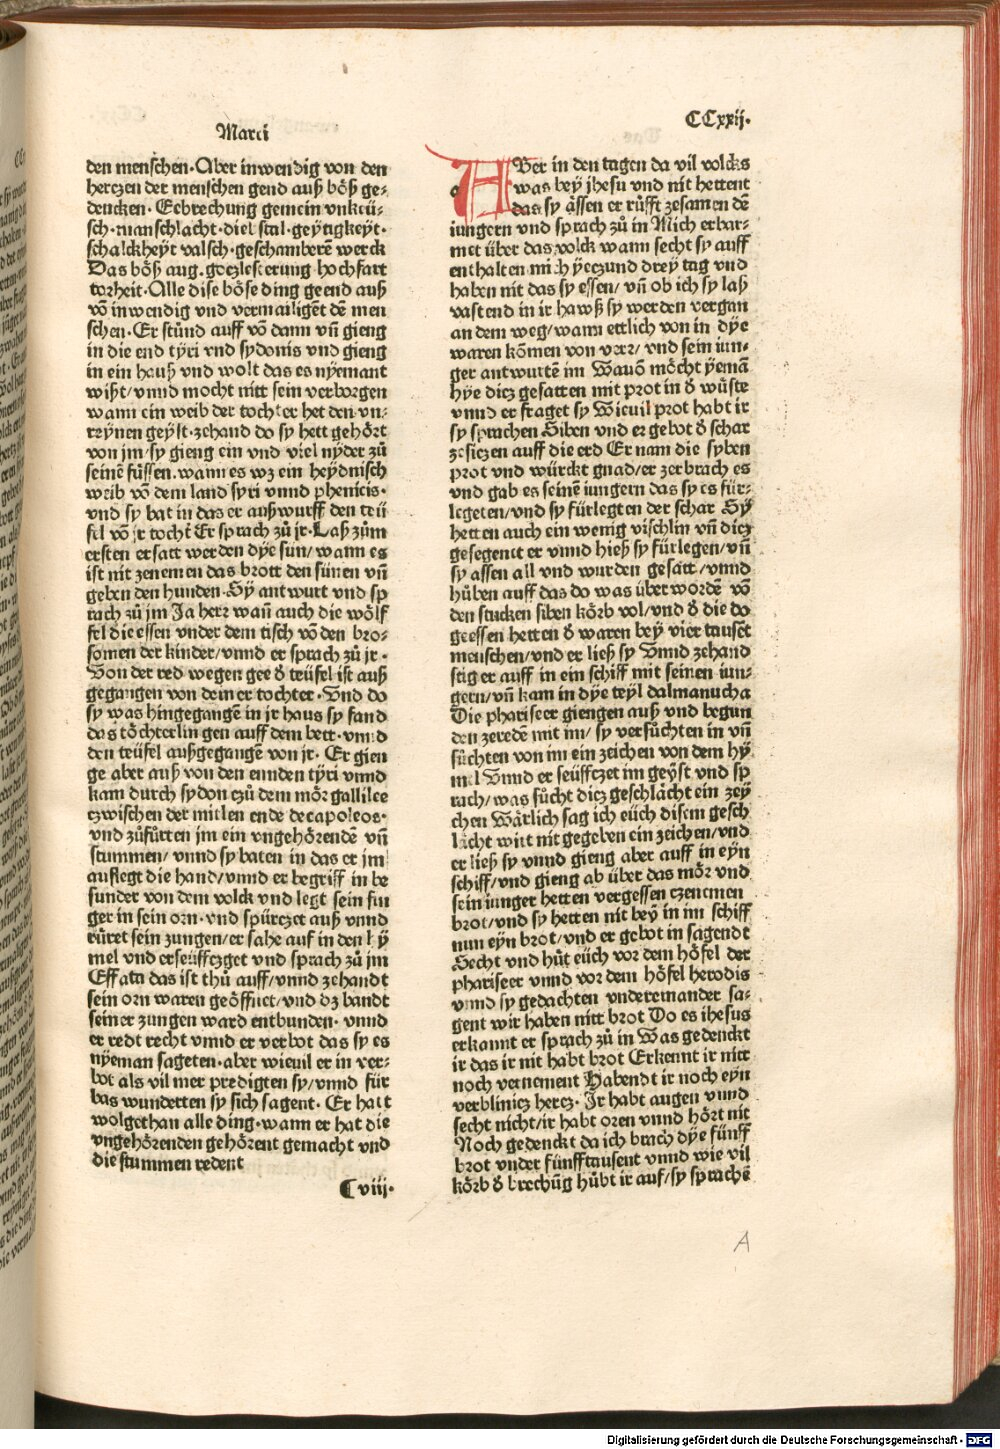 Marci
CCxxij.
den menschen. Aber inwendig von den
herczen der menschen gend auß böß ge-
dencken. Eebrechung gemein vnkeü-
sch. manschlacht. diebstal. geytigkeyt.
schalckheyt valsch. geschamberẽ werck
Das böß aug. goczlesterung hochfart
torheit. Alle dise böse ding geend auß
võ inwendig vnd vermailigẽt dẽ men
schen. Er stůnd auff võ dann vñ gieng
in die end tÿri vnd sydonis vnd gieng
in ein hauß vnd wolt das es nÿemant
wißt/vnnd mocht nitt sein verborgen
wann ein weib der tochter het den vn-
reÿnen geÿst. zehand do sy hett gehört
von jm/sy gieng ein vnd viel nÿder zů
seinẽ fůssen. wann es wz ein heÿdnisch
weib võ dem land syri vnnd phenicis.
vnd sy bat in das er außwurff den teü
fel võ jr tochť Er sprach zů jr. Laß zům
ersten ersatt werden dÿe sun/wann es
ist nit zenemen das brott den sünen vñ
geben den hunden. Sÿ antwurt vnd sp
rach zů jm Ja herr wañ auch die wölf
fel die essen vnder dem tisch võ den bro-
somen der kinder/vnnd er sprach zů jr.
Von der red wegen gee ð teüfel ist auß
gegangen von deiner tochter. Vnd do
sy was hingegangẽ in jr haus sy fand
das töchterlin gen auff dem bett. vnnd
den teüfel außgegangẽ von jr. Er gien
ge aber auß von den ennden tÿri vnnd
kam durch sydon czů dem mör gallilee
czwischen der mitlen ende decapoleos.
vnd zůfůrten jm ein vngehörendẽ vñ
stummen/vnnd sy baten in das er jm
auflegt die hand/vnnd er begriff in be
sunder von dem volck vnd legt sein fin
ger in sein orn. vnd spürczet auß vnnd
rüret sein zungen/er sahe auf in den hÿ
mel vnd erseüffczget vnd sprach zů jm
Effata das ist thů auff/vnnd zehandt
sein orn waren geöffnet/vnd dz bandt
seiner zungen ward entbunden. vnnd
er redt recht vnnd er verbot das sy es
nÿeman sageten. aber wieuil er in ver-
bot als vil mer predigten sy/vnnd für
bas wunderten sy sich sagent. Er hatt
wolgethan alle ding. wann er hat die
vngehörenden gehörent gemacht vnd
die stummen redent
¶viij.
ABer in den tagen da vil volcks
was beÿ jhesu vnd nit hettent
das sy ässen er růfft zesamen dẽ
iungern vnd sprach zů in Mich erbar-
met über das volck wann secht sy auff
enthalten mich ÿeczund dreÿ tag vnd
haben nit das sy essen/vñ ob ich sy laß
vastend in ir hawß sy werden vergan
an dem weg/wann ettlich von in dÿe
waren kõmen von verr/vnd sein iun-
ger antwurtẽ im Wauõ möcht ÿemã
hÿe dicz gesatten mit prot in ð wůste
vnnd er fraget sy Wieuil prot habt ir
sy sprachen Siben vnd er gebot ð schar
zesiczen auff die erd Er nam die syben
prot vnd würckt gnad/er zerbrach es
vnd gab es seinẽ iungern das sy es für-
legeten/vnd sy fürlegten der schar Sÿ
hetten auch ein wenig vischlin vñ dicz
gesegenet er vnnd hieß sy fürlegen/vñ
sy assen all vnd wurden gesatt/vnnd
hůben auff das do was überwordẽ võ
den stucken siben körb vol/vnd ð die do
geessen hetten ð waren beÿ vier tausẽt
menschen/vnd er ließ sy Vnnd zehand
stig er auff in ein schiff mit seinen iun-
gern/vñ kam in dÿe teÿl dalmanucha
Die phariseer giengen auß vnd begun
den zeredẽ mit im/sy versůchten in vñ
sůchten von im ein zeichen von dem hÿ
mel Vnnd er seüffczet im geÿst vnd sp
rach/was sůcht dicz geschlächt ein zeÿ
chen Wärlich sag ich eüch disem gesch
lächt wirt nit gegeben ein zeichen/vnd
er ließ sy vnnd gieng aber auff in eÿn
schiff/vnd gieng ab über das mör vnd
sein iunger hetten vergessen czenemen
brot/vnd sy hetten nit beÿ in im schiff
nun eÿn brot/vnd er gebot in sagendt
Secht vnd hůt eüch vor dem höfel der
phariseer vnnd vor dem höfel herodis
vnnd sy gedachten vndereinander sa-
gent wir haben nitt brot Do es ihesus
erkannt er sprach zů in Was gedenckt
ir das ir nit habt brot Erkennt ir nitt
noch vernement Habendt ir noch eÿn
verblincz hercz. Ir habt augen vnnd
secht nicht/ir habt oren vnnd hört nit
Noch gedenckt da ich brach dÿe fünff
brot vnder fünfftausent vnnd wie vil
körb ð brechũg hůbt ir auf/sy sprachẽ
A
Digitalisierung gefördert durch die Deutsche Forschungsgemeinschaft - DFG